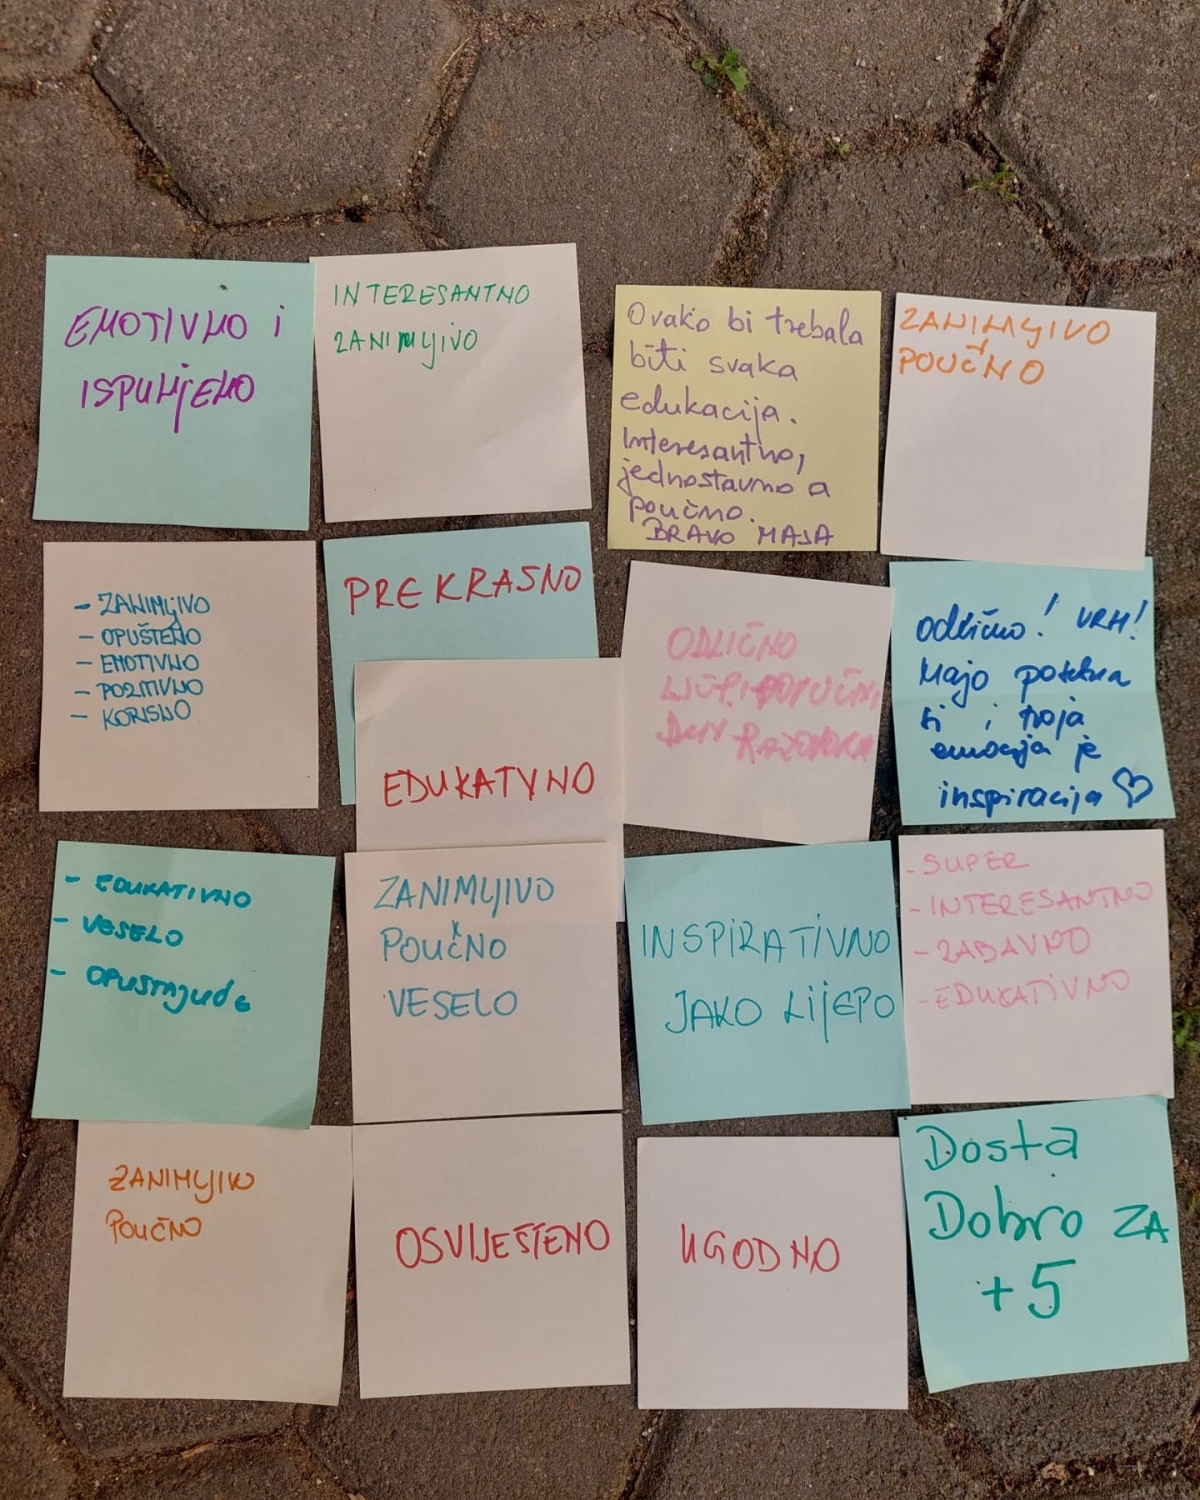 EMOTIVNO i
ISPUNjENO
INTERESANTNO
ZANIMLjIVO
Ovako bi trebala
biti svaka
edukacija.
Interesantno,
jednostavno a
poučno.
BRAVO MAJA
ZANIMLJIVO
POUČNO
- ZANIMLjIVO
- OPUŠTENO
- EMOTIVNO
- POZITIVNO
- KORISNO
PREKRASNO
EDUKATVNO
ODLIČNO
odlično! VRH!
Majo posebna
si i tvoja
emocija je
inspiracija ♡
- EDUKATIVNO
- VESELO
- OPUŠTAJUĆE
ZANIMLJIVO
POUČNO
VESELO
INSPIRATIVNO
JAKO LIJEPO
- SUPER
- INTERESANTNO
- ZABAVNO
- EDUKATIVNO
ZANIMLJIVO
POUČNO
OSVIJEŠTENO
UGODNO
Dosta
Dobro ZA
+5